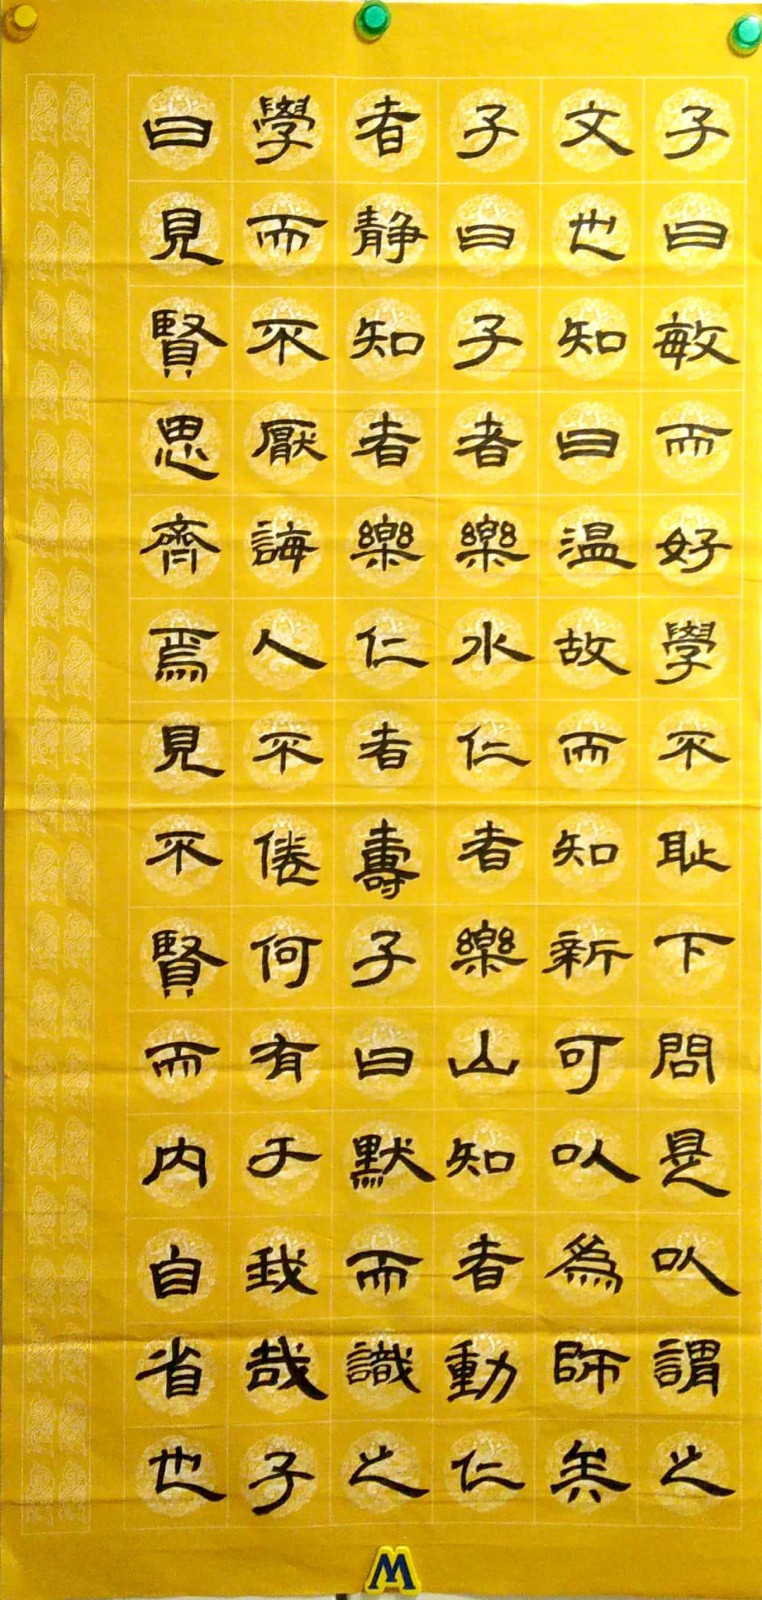 子曰敏而好學不恥下問是以謂之
文也知曰温故而知新可以為師矣
子曰子者樂水仁者樂山知者動仁
者静知者樂仁者壽子曰默而識之
學而不厭誨人不倦何有于我哉子
曰見賢思齊焉見不賢而内自省也
W